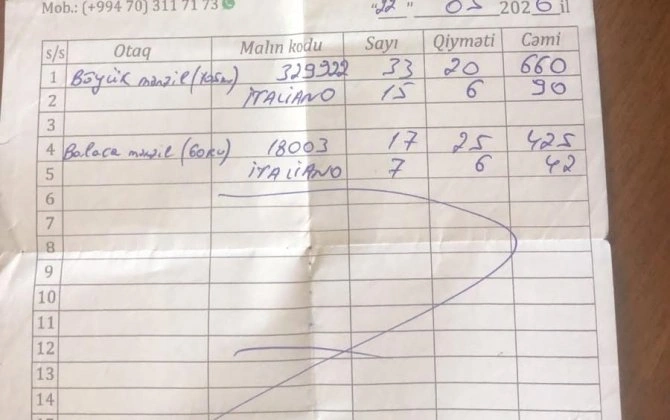 Mob.: (+994 70) 311 71 73 "22" 05 2026 il
s/s Otaq Malın kodu Sayı Qiyməti Cəmi
1 Böyük mənzil 329922 33 20 660
2 İTALİANO 15 6 90
3
4 Balaca mənzil 18003 17 25 425
5 İTALİANO 7 6 42
6
7
8
9
10
11
12
13
14